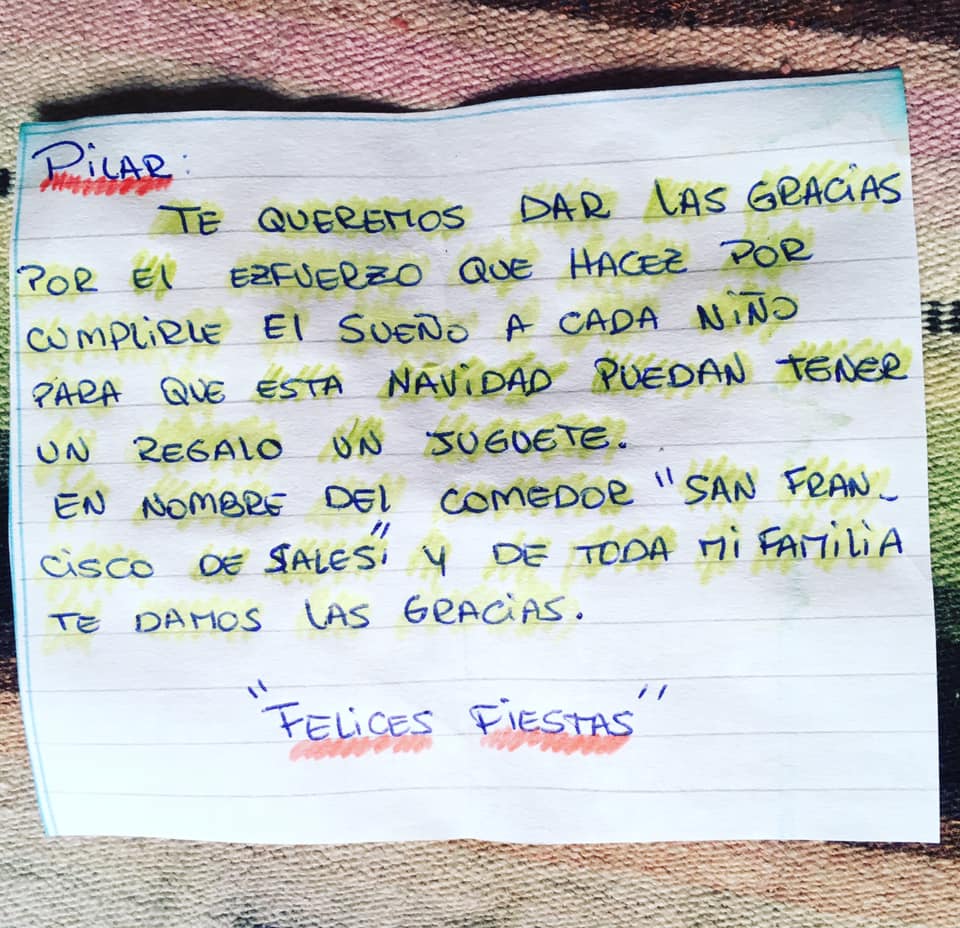 PILAR:
TE QUEREMOS DAR LAS GRACIAS
POR El EZFUERZO QUE HACEZ POR
CUMPLIRLE El SUEÑO A CADA NIÑO
PARA QUE ESTA NAVIDAD PUEDAN TENER
UN REGALO UN JUGUETE.
EN NOMBRE DEL COMEDOR "SAN FRAN_
CISCO DE SALES" Y DE TODA MI FAMILIA
TE DAMOS LAS GRACIAS.
"FELICES FIESTAS"